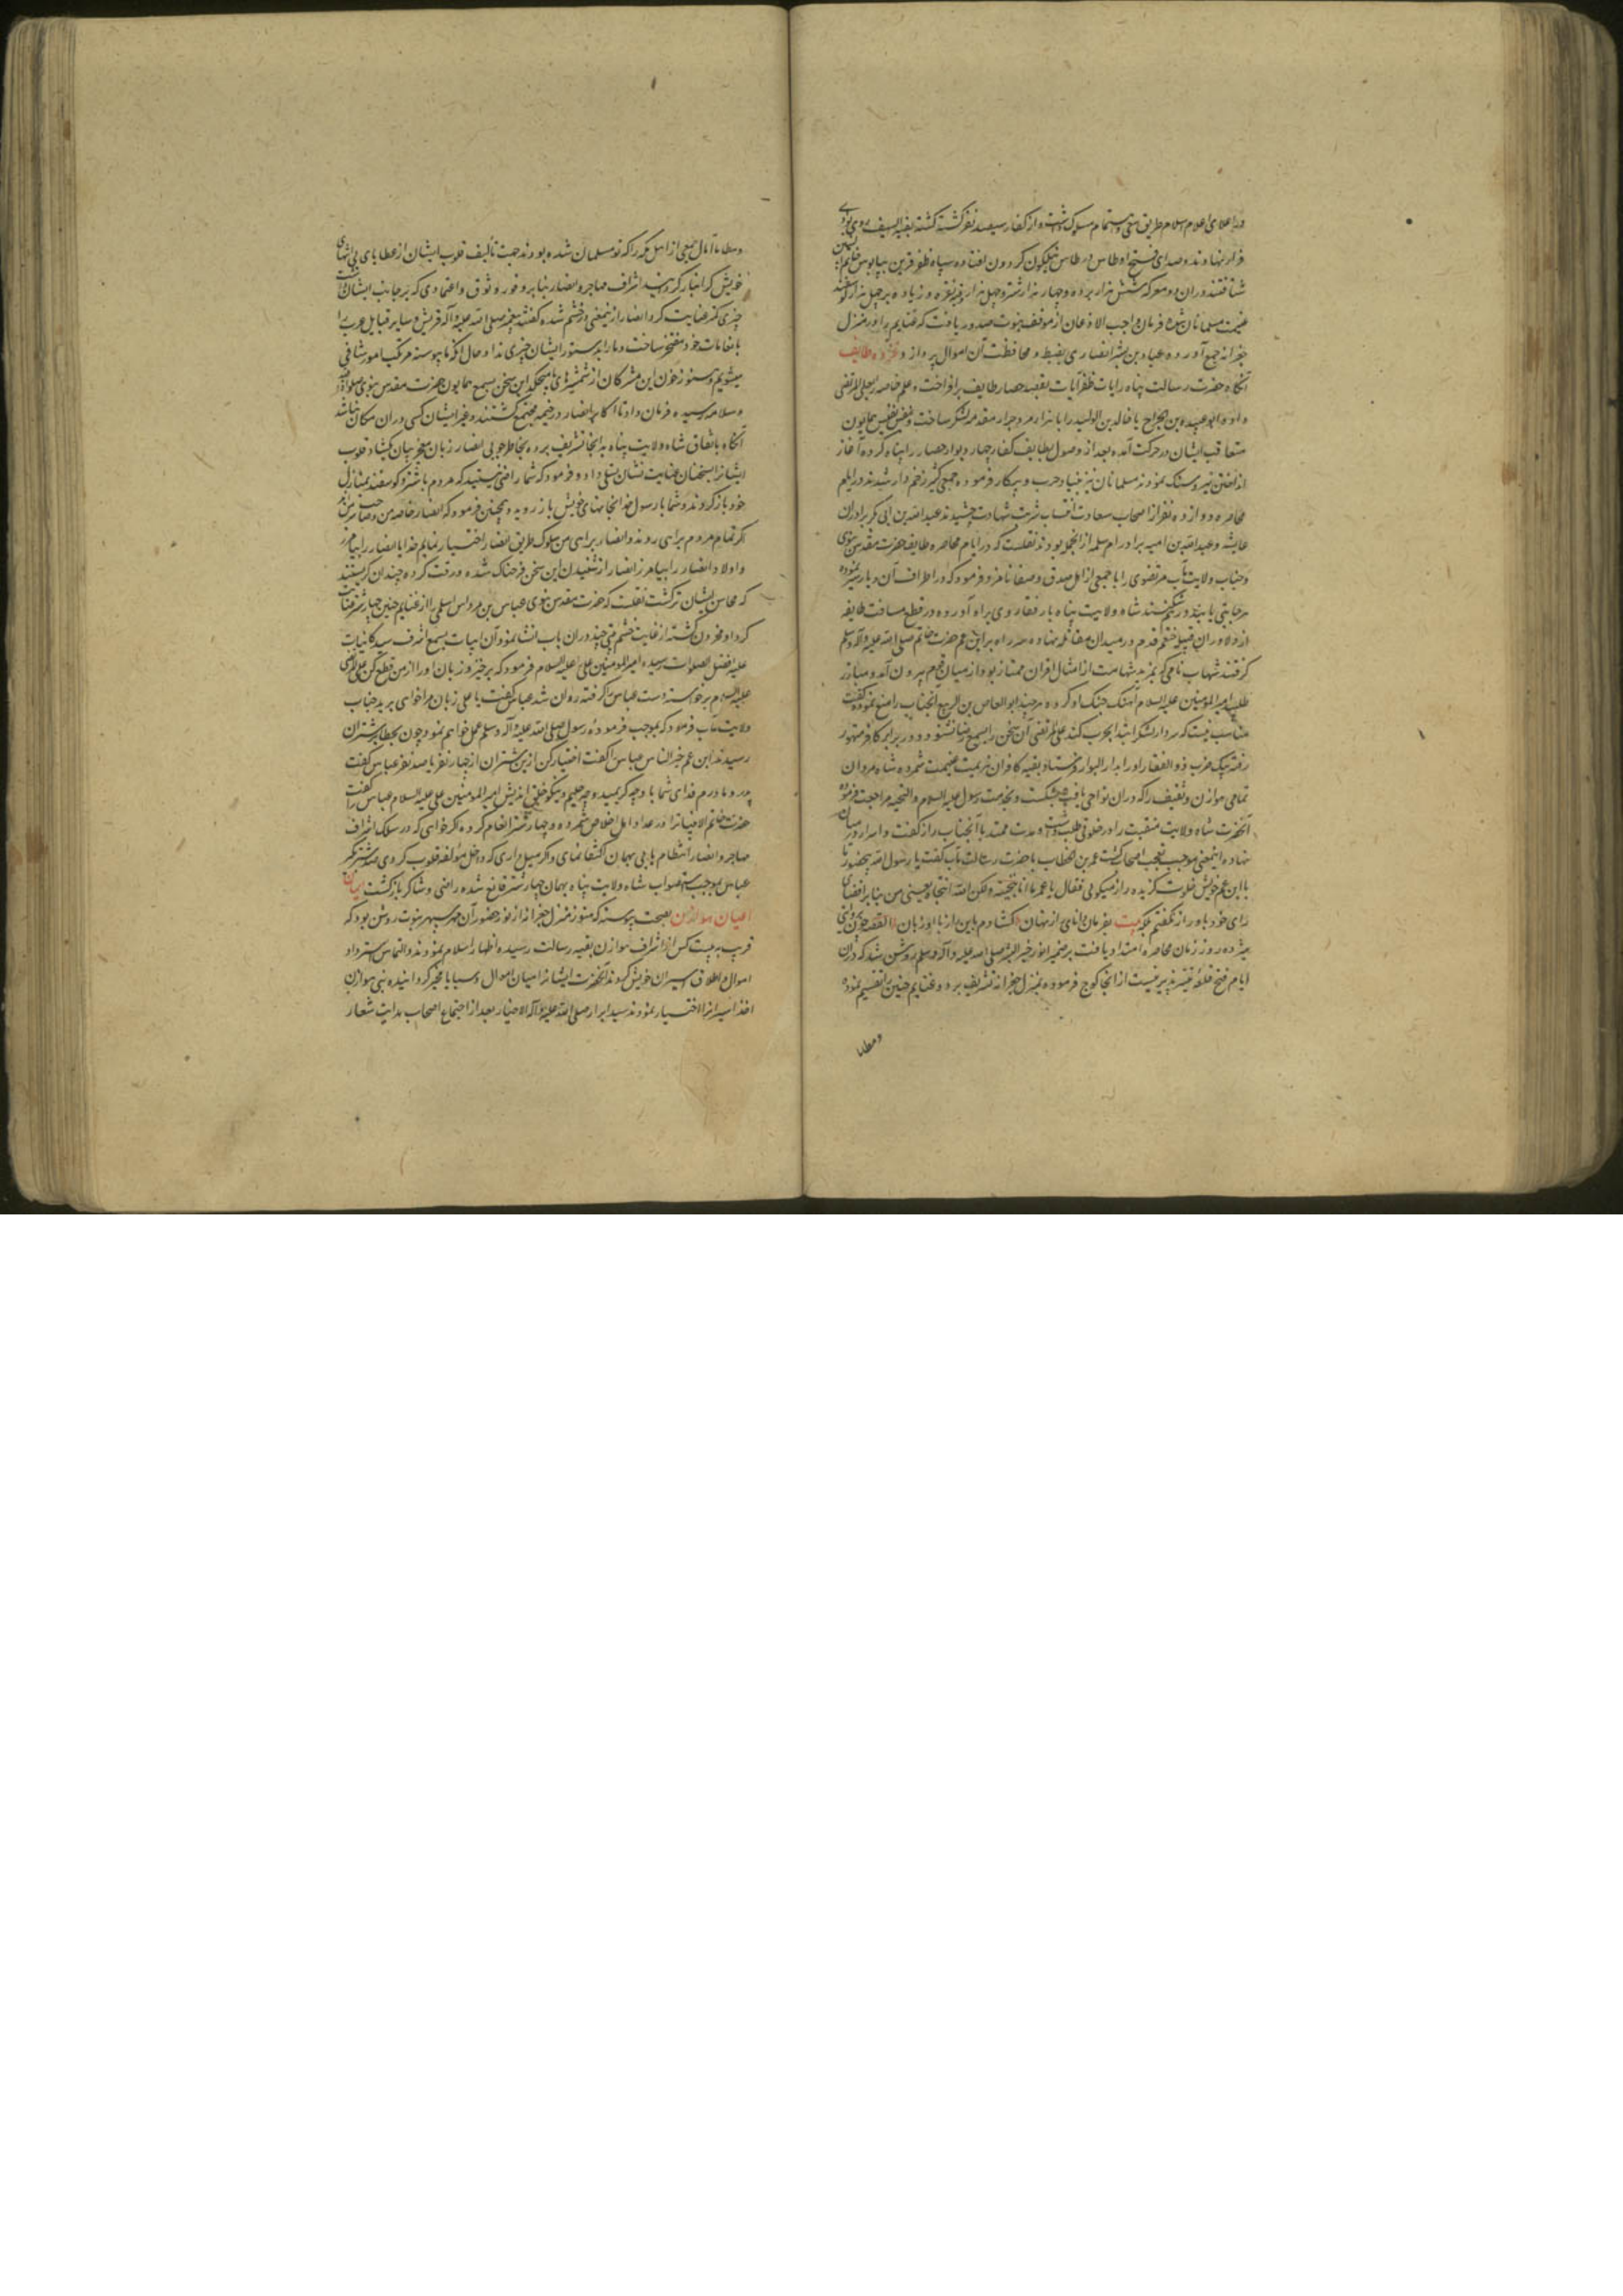 در اعلای اعلام اسلام طریق سعی و اهتمام مسلوک داشت و از کفار سیصد نفر کشته کشته بقیة السیف روی بوادی
فرار نهادند و صدای فتح اوطاس در طاس نیلگون کردون افتاده سپاه ظفر قرین
شتافتند در ان معرکه شش هزار برده و چهار هزار شتر و چهل هزار وقیه نقره و زیاده بر چهل هزار کوسفند
غنیمت مسلمانان شد و فرمان واجب الاذعان از موقف نبوت صدور یافت که غنایم را در منزل
جعرانه جمع آورده عباد بن بشر انصاری بضبط و محافظت آن اموال پردازد و غزوه طایف
آنکاه حضرت رسالت پناه رایات ظفر آیات بقصد حصار طایف برافراخت و علم خاصه را بعلی المرتضی
داده ابو عبیده بن الجراح با خالد بن الولید را با هزار مرد جرار مقدمه لشکر ساخت و بنفس نفیس همایون
متعاقب ایشان در حرکت آمده بعد از وصول بطایف کفار چهار دیوار حصار را پناه کرده آغاز
انداختن تیر و سنک نمودند مسلمانان نیز بنیاد حرب و پیکار فرموده جمعی کثیر زخم دار شدند در ایام
محاصره دوازده نفر از اصحاب سعادت اکتساب شربت شهادت چشیدند عبد الله بن ابی بکر برادران
عایشه و عبد الله بن امیه برادر ام سلمه از انجمله بودند نقلست که در ایام محاصره طایف حضرت مقدس نبوی
و جناب ولایت مآب مرتضوی را با جمعی از اهل صدق و صفا نامزد فرمود که در اطراف آن دیار سیر نموده
هر جا بتی یابند در هم شکنند شاه ولایت پناه با رفقا روی براه آورده در قطع مسافت طایفه
از دلاوران قبیله خثعم قدم در میدان مقاتله نهاده سر راه بر ابن عم حضرت خاتم صلی الله علیه و آله وسلم
کرفتند شهاب نامی که بمزید شهامت از امثال اقران ممتاز بود از میان قوم بیرون آمده مبارز
طلبید امیر المؤمنین علیه السلام آهنک جنک او کرده هر چند ابو العاص بن الربیع آنجناب را منع نموده گفت
مناسب نیست که سردار لشکر ابتدا بحرب کند علی المرتضی آن سخن را بسمع رضا نشنود و در برابر کافر مقهور
رفته بیک ضرب ذو الفقار او را بدار البوار فرستاد بقیه کافران هزیمت غنیمت شمرده شاه مردان
تمامی هوازن و ثقیف را که دران نواحی یافت بشکست و بخدمت رسول علیه السلام و التحیه مراجعت فرموده
آنحضرت شاه ولایت منقبت را در خلوتی طلب داشت و مدت ممتد با آنجناب راز گفت و اسرار در میان
نهاده اینمعنی موجب تعجب اصحاب گشت عمر بن خطاب با حضرت رسالت مآب گفت یا رسول الله بحضور ما
با ابن عم خویش خلوت گزیده راز میکوئی فقال یا عمر ما انا انتجیته ولکن الله انتجاه یعنی من بنابر اقتضای
رای خود باو راز نگفتم بلکه بیت بفرمان دانای راز نهان گشادم باین راز با او زبان القصه چون
هیژده روز زمان محاصره امتداد یافت بر ضمیر انور خیر البشر صلی الله علیه و آله وسلم روشن شد که دران
ایام فتح قلعه تیسیر پذیر نیست از انجا کوچ فرموده بمنزل جعرانه تشریف برد و غنایم حنین را تقسیم نموده
و مطایا
و مطایا آمال جمعی از اهل مکه را که نو مسلمان شده بودند جهت تألیف قلوب ایشان از عطایای بی انتهای
خویش کرانبار کردانید اشراف مهاجر و انصار بنابر وفور وثوق و اعتمادی که بر جانب ایشان داشت
چیزی کمتر عنایت کرد انصار از ینمعنی در خشم شده گفتند پیغمبر صلی الله علیه و آله قریش و سایر قبایل عرب را
بانعامات خود مفتخر ساخت و ما را بدستور ایشان چیزی نداد و حال آنکه ما پیوسته مرتکب امور شاق می
میشویم و هنوز خون این مشرکان از شمشیرهای ما میچکد این سخن بسمع همایون حضرت مقدس نبوی صلوات الله
و سلامه رسیده فرمان داد تا اکابر انصار در خیمه مجتمع گشتند و غیر ایشان کسی دران مکان نباشد
آنکاه باتفاق شاه ولایت پناه بدانجا تشریف برده بخاطر جوئی انصار زبان معجز بیان بگشاد قلوب
ایشانرا بسخنان عنایت نشان تسلی داد و فرمود که شما راضی نیستید که مردم با شتر و گوسفند بمنازل
خود باز کردند و شما با رسول خدا بخانهای خویش باز روید و همچنین فرمود که انصار خاصه من و صاحب سر منند
اگر تمام مردم براهی روند و انصار براهی من سلوک طریق انصار اختیار نمایم خدایا انصار را بیامرز
و اولاد انصار را بیامرز انصار از شنیدن این سخن فرحناک شده و رقت کرده چندان گریستند
که محاسن ایشان تر گشت نقلست که حضرت مقدس نبوی عباس بن مرداس اسلمی را از غنایم حنین چهار شتر عنایت
کرد او محزون گشته از غایت خشم بیتی چند دران باب انشا نمود و آن ابیات بسمع اشرف سید کاینات
علیه افضل الصلوات رسیده امیر المؤمنین علی علیه السلام فرمود که برخیز و زبان او را از من قطع کن علی المرتضی
علیه السلام برخواسته دست عباس گرفته روان شد عباس گفت یا علی زبان مرا خواهی برید جناب
ولایت مآب فرمود که بموجب فرموده رسول صلی الله علیه و آله وسلم عمل خواهم نمود چون بحظایر شتران
رسیدند ابن عم خیر الناس عباس را گفت اختیار کن ازین شتران از چهار نفر تا صد نفر عباس گفت
پدر و مادرم فدای شما باد چه کریمید و چه حلیم و نیکو خلقی اندیش امیر المؤمنین علی علیه السلام عباس را گفت
حضرت خاتم الانبیا ترا در عداد اهل اخلاص شمرده و چهار شتر انعام کرده اگر خواهی که در سلک اشراف
مهاجر و انصار انتظام یابی بهمان اکتفا نمای و اگر میل داری که داخل مؤلفه قلوب کردی صد شتر بگیر
عباس بموجب استصواب شاه ولایت پناه بهمان چهار شتر قانع شده راضی و شاکر بازگشت بیان
اعیان هوازن بصحت پیوسته که هنوز منزل جعرانه از نور حضور آن مهر سپهر نبوت روشن بود که
قریب به بیست کس از اشراف هوازن بعتبه رسالت رسیده و اظهار اسلام نمودند و التماس استرداد
اموال و اطلاق اسیران خویش کردند آنحضرت ایشانرا میان اموال و سبایا مخیر کردانیده بنی هوازن
اخذ اسیرانرا اختیار نمودند سید ابرار صلی الله علیه و آله الاخیار بعد از اجتماع اصحاب هدایت شعار